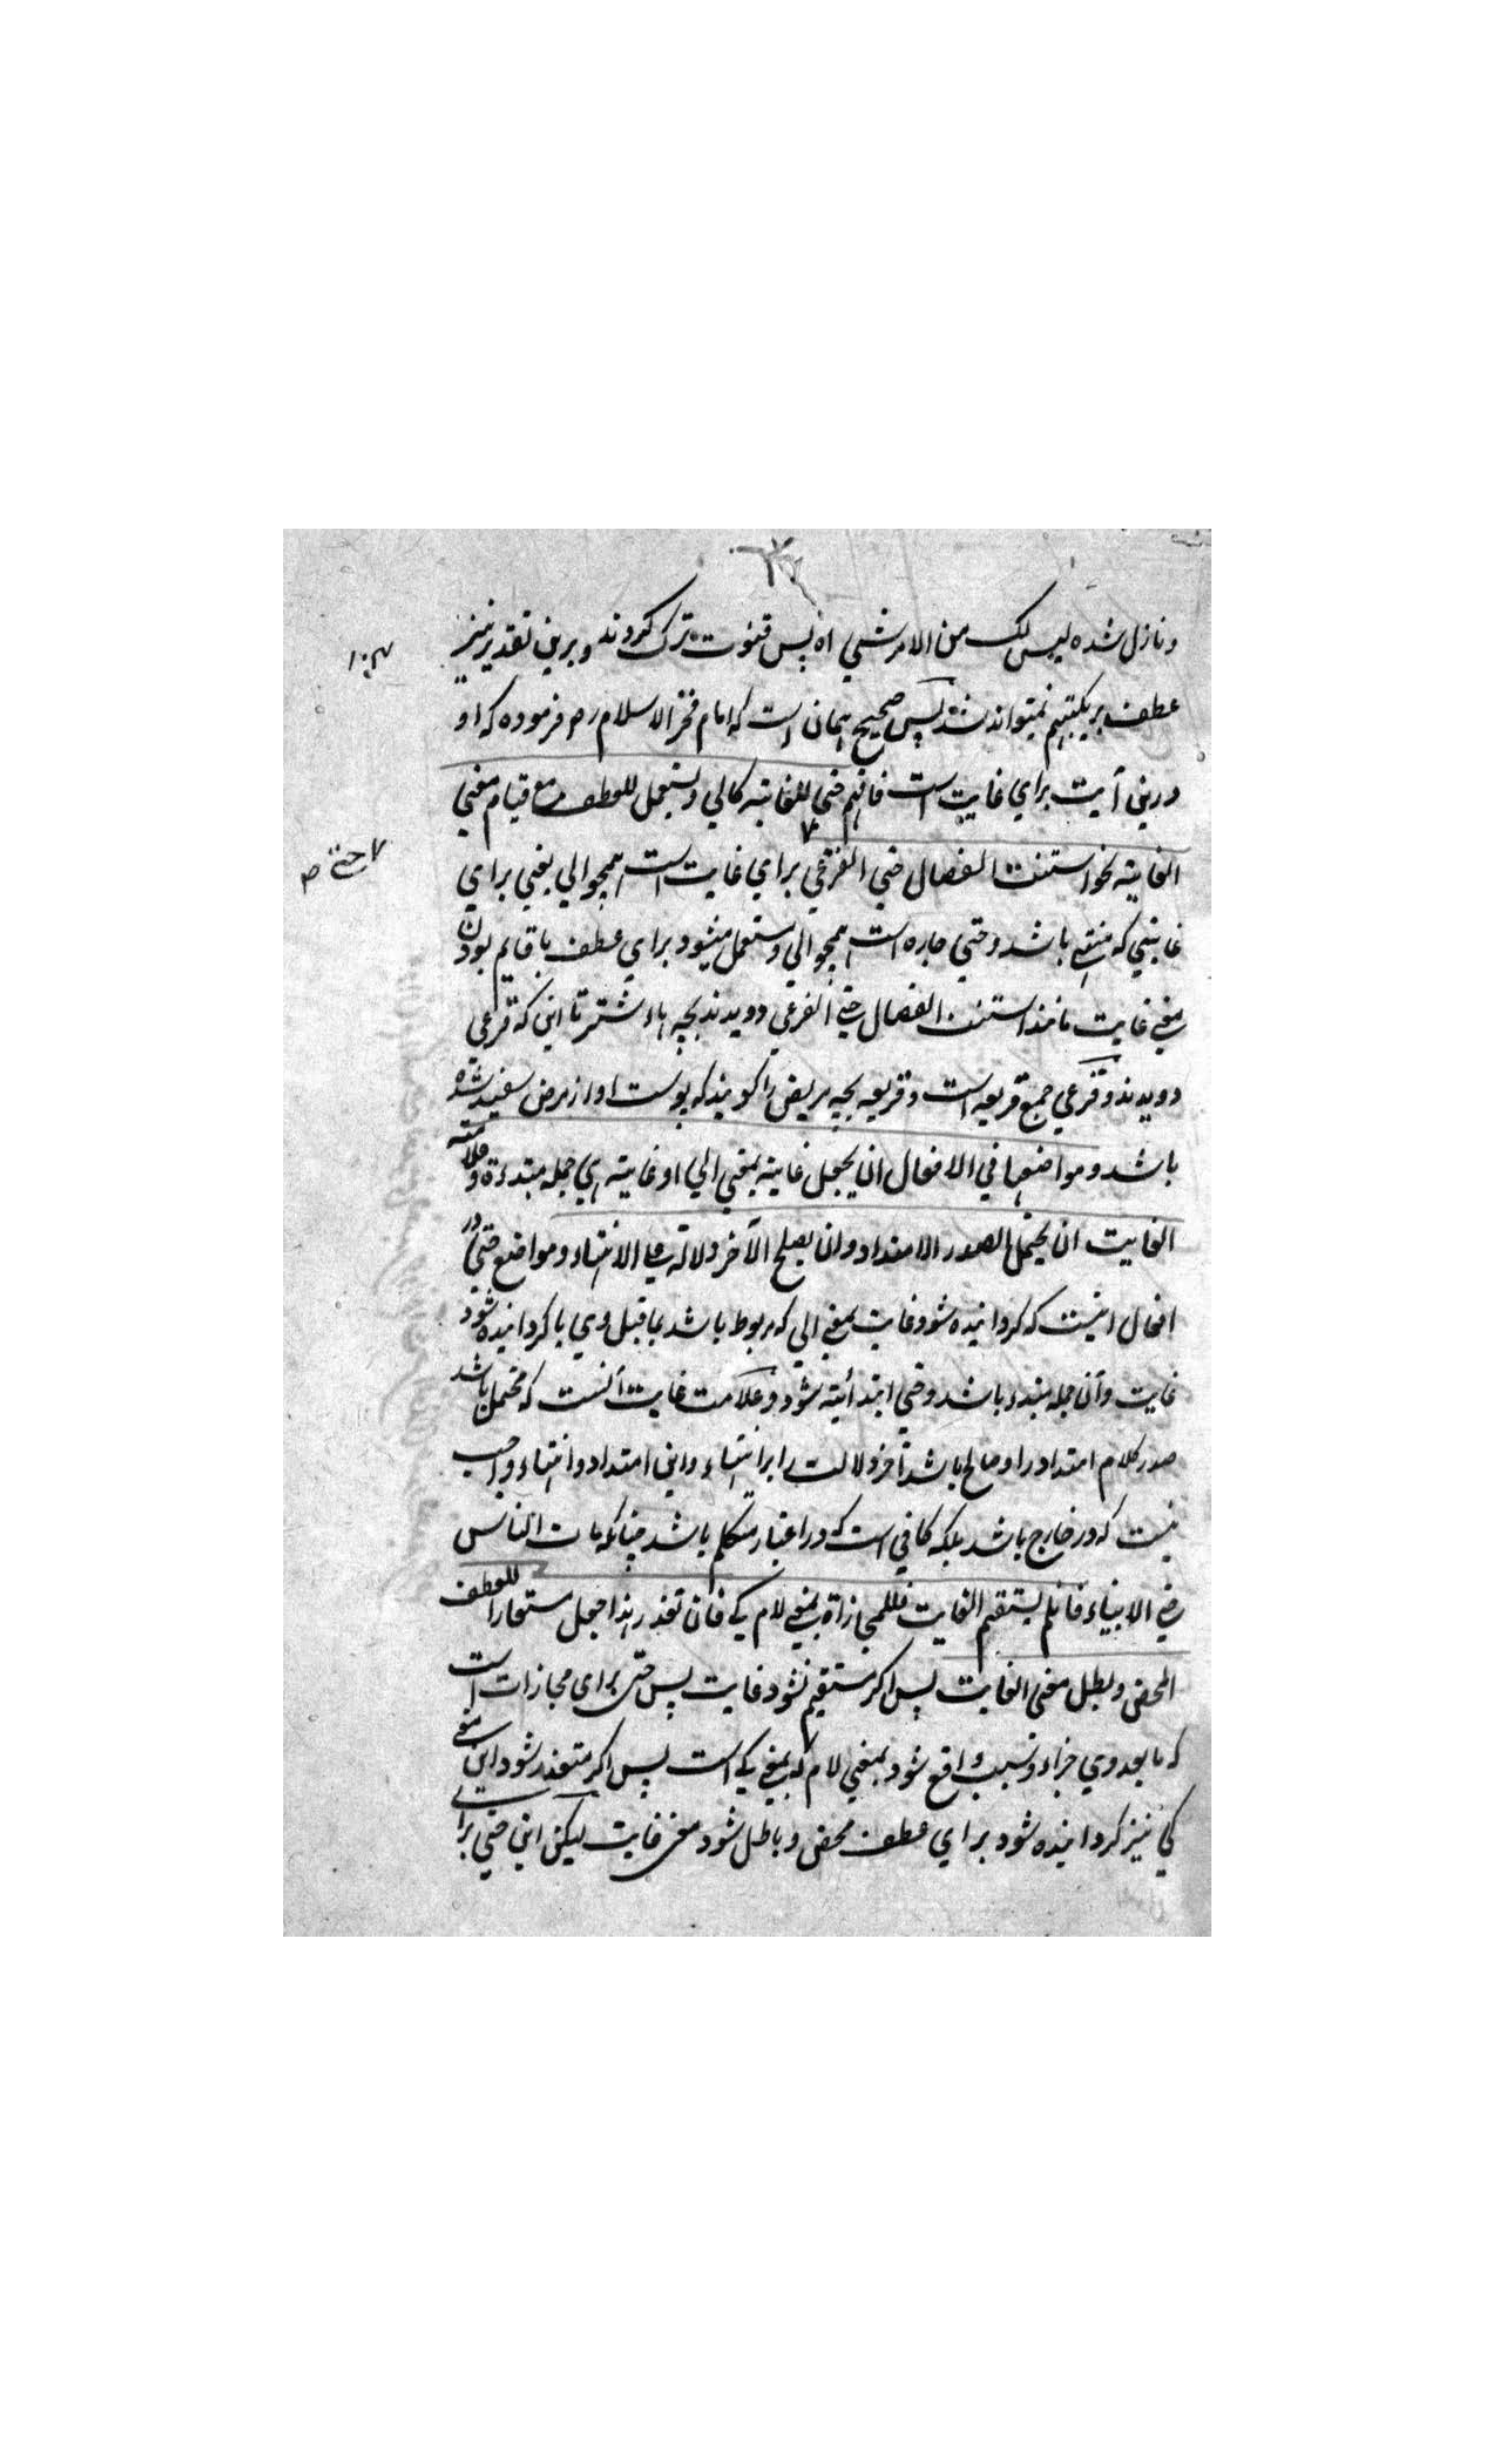 ونازل شده لیس لک من الامر شیی اه پس قنوت ترک کردند وبرین تقدیر نیز
عطف بر یکبتهم نمیتواند شد پس صحیح همان است که امام فخر الاسلام رح فرموده که او
درینی آیت برای غایت است فافهم حتی للغایته کالی ویستعمل للعطف مع قیام معنی
الغایته نحو استنت الفصال حتی القرعی برای غایت است همچو الی یعنی برای
غایتی که منتهی باشد وحتی جاره است همچو الی ومستعمل میشود برای عطف با قایم بودن
معنی غایت مانند استنت الفصال حتی القرعی دویدند بچه هاء شتر تا این که قرعی
دویدند وقرعی جمع قریعه است وقریعه بچه مریض را کویند که پوست او از مرض سفید شده
باشد ومواضعها فی الافعال ان یجعل غایته بمعنی الی او غایته هی جمله مبتدءة وعلامته
الغایت ان یحتمل الصدر الامتداد وان یصلح الآخر دلالة علی الانتهاء ومواضع حتی در
افعال اینست که کردانیده شود غایت بمعنی الی که مربوط باشد بما قبل وی یا کردانیده شود
غایت وآن جمله مبتدء باشد وحتی ابتدائیته شود وعلامت غایت آنست که محتمل باشد
صدر کلام امتداد را وصالح باشد آخر دلالت را بر انتهاء واین امتداد وانتهاء واجب
نیست که در خارج باشد بلکه کافی است که در اعتبار متکلم باشد چنانکه مات الناس
حتی الانبیاء فان لم یستقیم الغایت فللمجازاة بمعنی لام کی فان تعذر هذا جعل مستعارا للعطف
المحض وبطل معنی الغایت پس اکر مستقیم نشود غایت پس حتی برای مجازات است
که ما بعد وی جزاء ومسبب واقع شود بمعنی لام که بمعنی کی است پس اکر متعذر شود این معنی
کی نیز کردانیده شود برای عطف محض وباطل شود معنی غایت لیکن این حتی برای
حتی ص